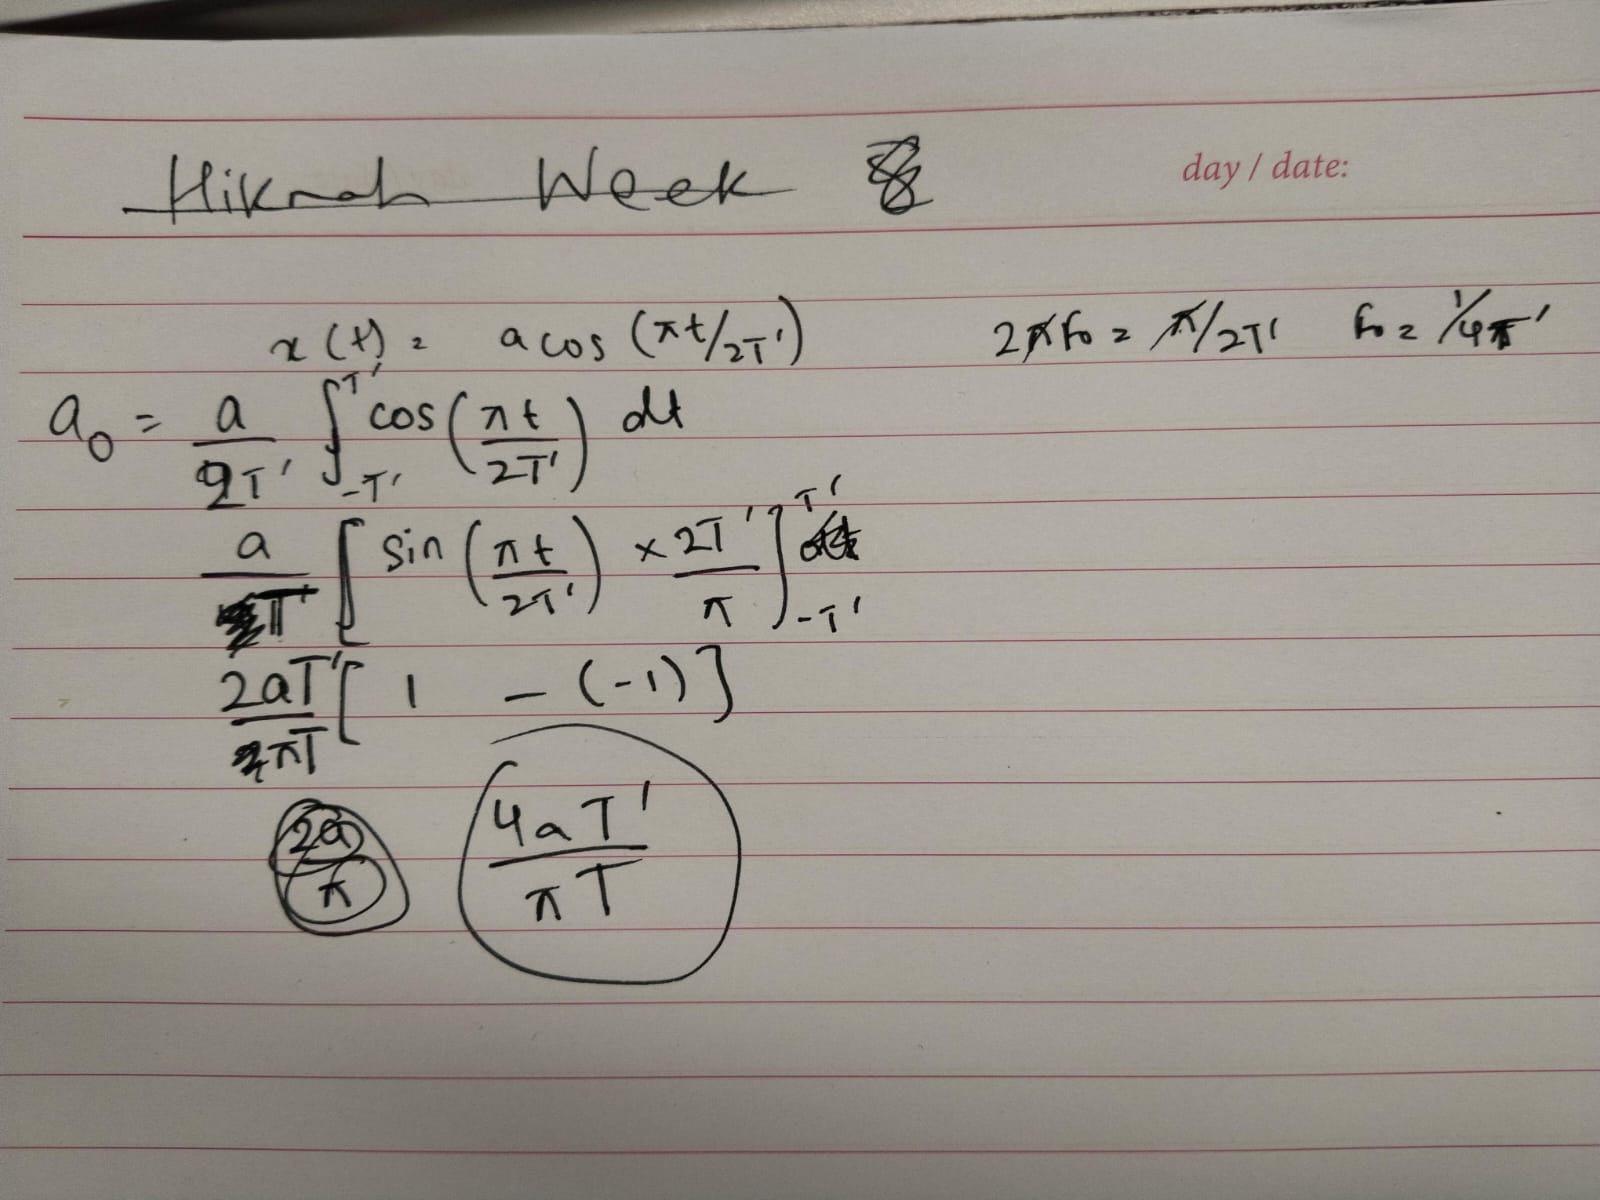 Hikmah Week 8
day / date:
x(t) = a cos (πt/2T') 2πf₀ = π/2T' f₀ = 1/4T'
a₀ = a/2T' ∫_{-T'}^{T'} cos (πt/2T') dt
a/T [ sin (πt/2T') × 2T'/π ]_{-T'}^{T'}
2aT'/πT [ 1 - (-1) ]
2a/π 4aT'/πT